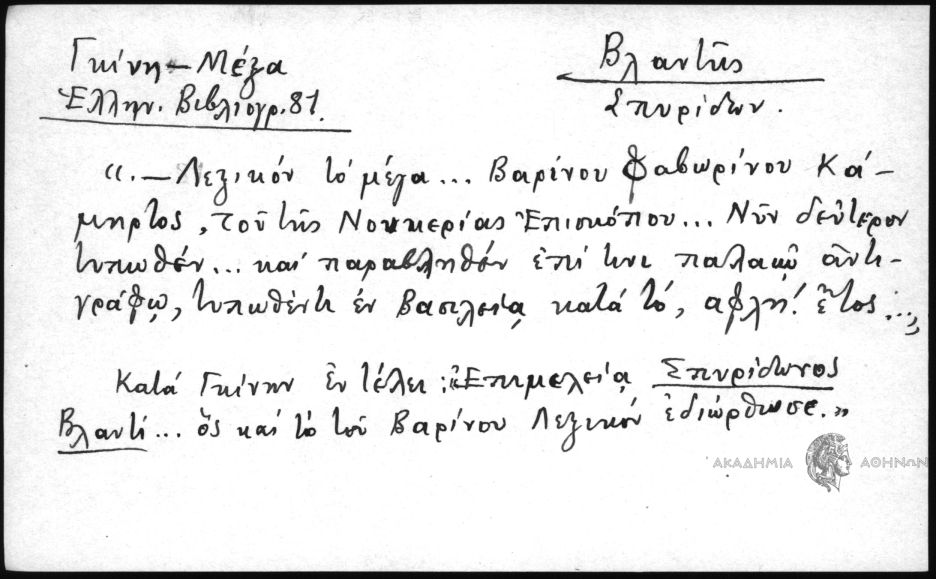 Γκίνη - Μέξα
Ἑλλην. Βιβλιογρ. 81.
Βλαντῆς
Σπυρίδων.
«.— Λεξικόν τό μέγα... Βαρίνου Φαβωρίνου Κά-
μηρτος, τοῦ τῆς Νουκερίας Ἐπισκόπου... Νῦν δεύτερον
τυπωθέν... καί παραβληθέν ἐπί τινι παλαιῷ ἀντι-
γράφῳ, τυπωθέντι ἐν Βασιλείᾳ κατά τό, αφλή! ἔτος...,
Κατά Γκίνην ἐν τέλει: «Ἐπιμελείᾳ Σπυρίδωνος
Βλαντί... ὅς καί τό τοῦ Βαρίνου Λεξικόν ἐδιώρθωσε.»
ΑΚΑΔΗΜΙΑ ΑΘΗΝΩΝ